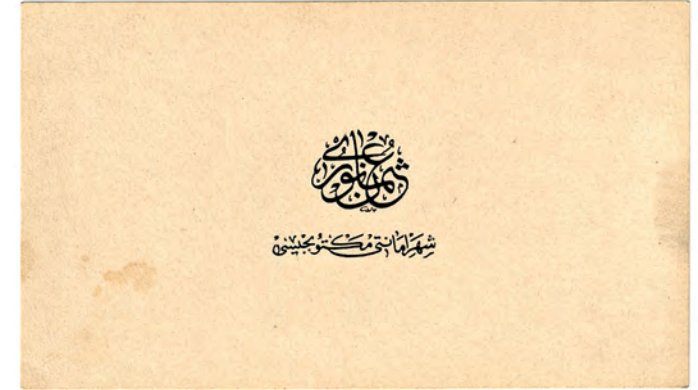 عثمان نوری
شهر امانتی مكتوبجیسی